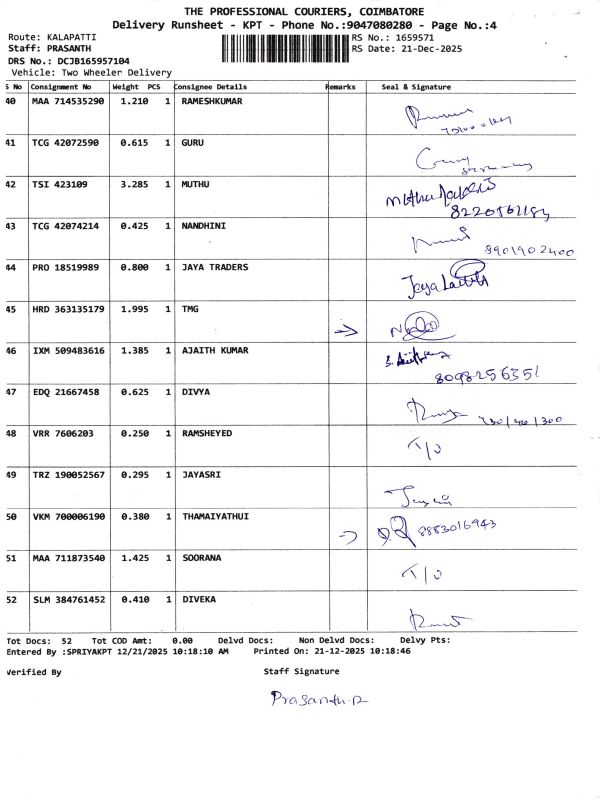 THE PROFESSIONAL COURIERS, COIMBATORE
Delivery Runsheet - KPT - Phone No.:9047080280 - Page No.:4
Route: KALAPATTI RS No.: 1659571
Staff: PRASANTH RS Date: 21-Dec-2025
DRS No.: DCJB165957104
Vehicle: Two Wheeler Delivery
S No Consignment No Weight PCS Consignee Details Remarks Seal & Signature
40 MAA 714535290 1.210 1 RAMESHKUMAR
41 TCG 42072590 0.615 1 GURU
42 TSI 423109 3.285 1 MUTHU
43 TCG 42074214 0.425 1 NANDHINI 8901902400
44 PRO 18519989 0.800 1 JAYA TRADERS
45 HRD 363135179 1.995 1 TMG
46 IXM 509483616 1.385 1 AJAITH KUMAR
8098256351
47 EDQ 21667458 0.625 1 DIVYA
48 VRR 7606203 0.250 1 RAMSHEYED T/O
49 TRZ 190052567 0.295 1 JAYASRI
50 VKM 700006190 0.380 1 THAMAIYATHUI 8883016943
51 MAA 711873540 1.425 1 SOORANA T/O
52 SLM 384761452 0.410 1 DIVEKA
Tot Docs: 52 Tot COD Amt: 0.00 Delvd Docs: Non Delvd Docs: Delvy Pts:
Entered By :SPRIYAKPT 12/21/2025 10:18:10 AM Printed On: 21-12-2025 10:18:46
Verified By Staff Signature
Prasanth.R